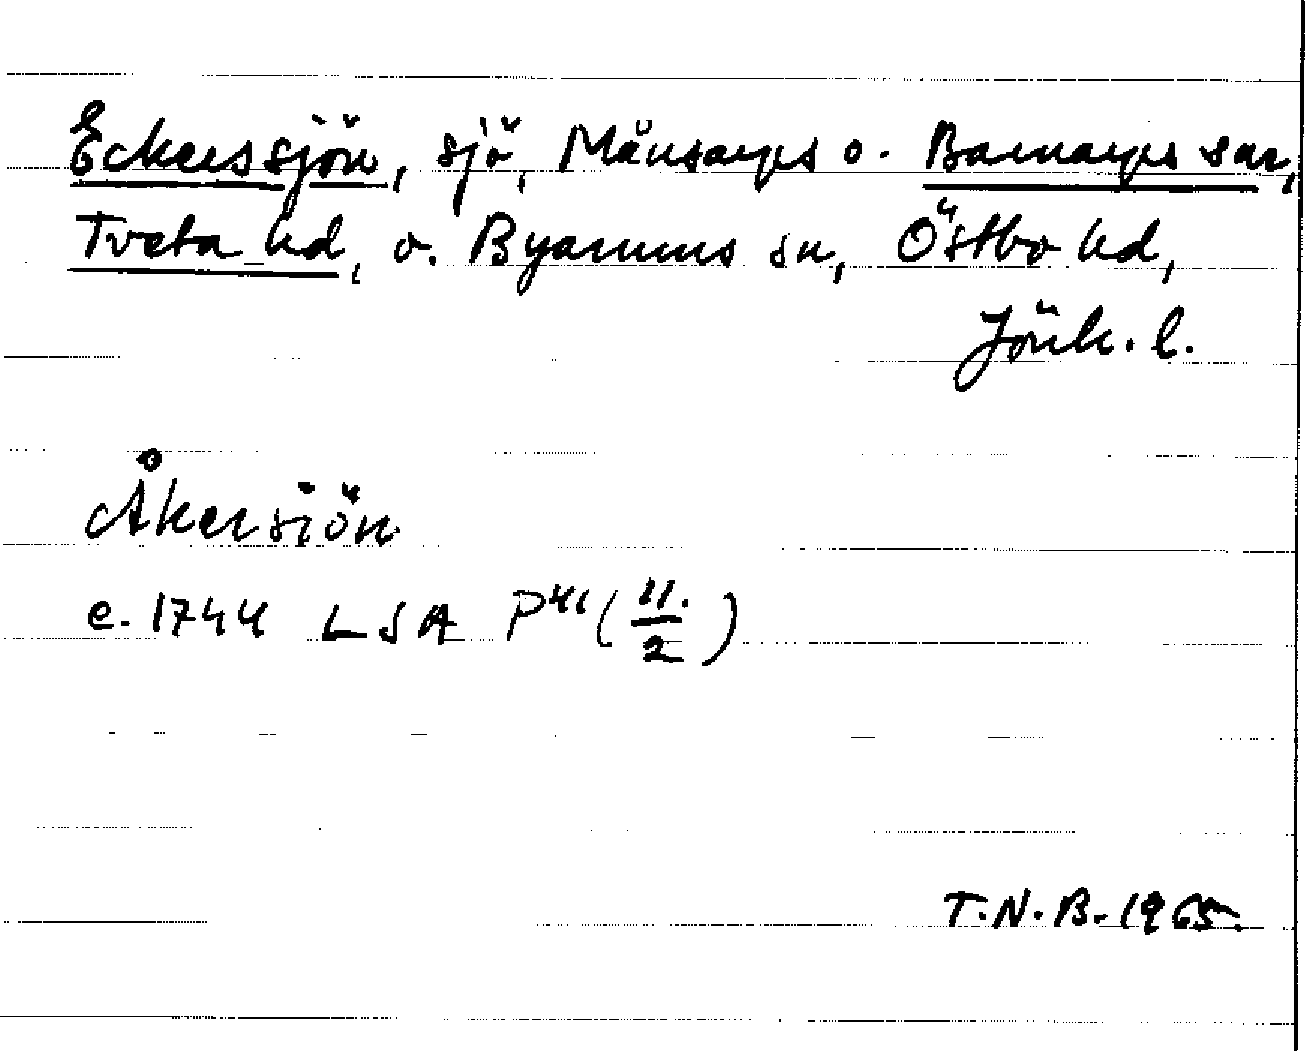 Eckerssjön, sjö, Månsarps o. Barnarps snr,
Tveta hd, o. Byarums sn, Östbo hd,
Jönk. l.
Åkersiön
c. 1744 LSA P41 (11./2)
T.N.B. 1965.